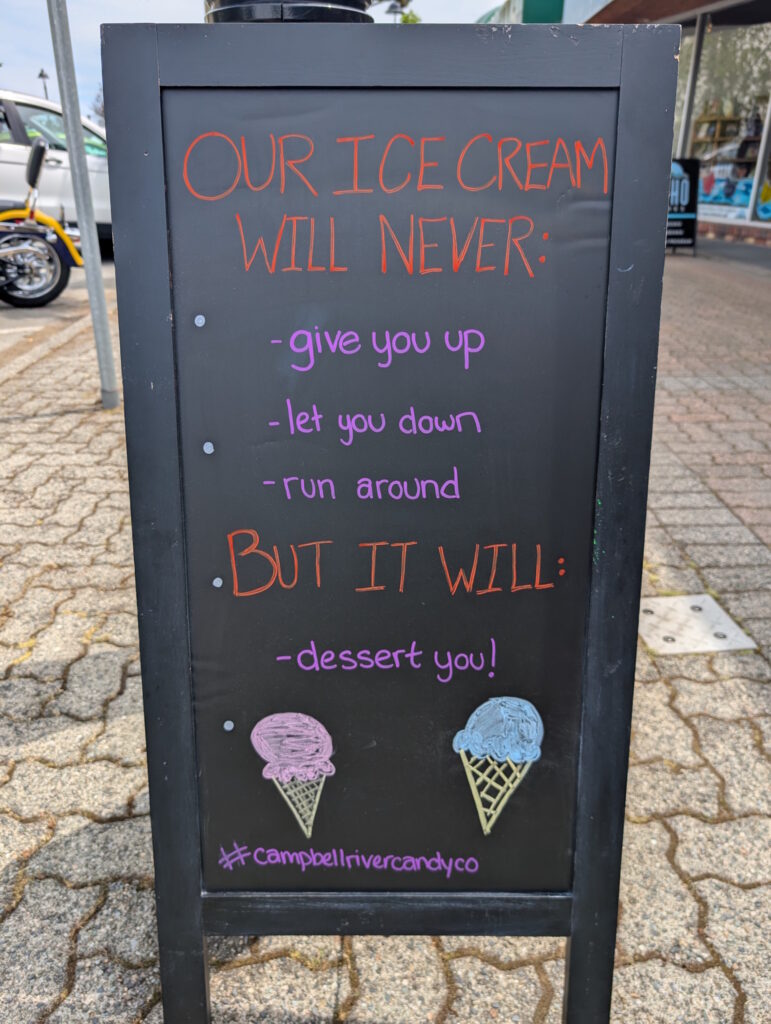 OUR ICE CREAM
WILL NEVER:
-give you up
-let you down
-run around
BUT IT WILL:
-dessert you!
#campbellrivercandyco